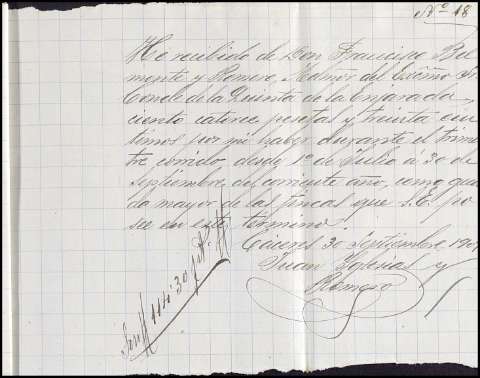 Nº 18
He recibido de Don Francisco Bel
monte y Romero, Admor del Excmo Sr
Conde de la Quinta de la Enjarada,
ciento catorce pesetas y treinta cen
timos por mi haber durante el trimes
tre corrido desde 1º de Julio a 30 de
Septiembre del corriente año, como guar
da mayor de las fincas que S. E. po
see en este termino
Cáceres 30 Septiembre
Juan Iglesias y
Romero
Son 114'30 pts